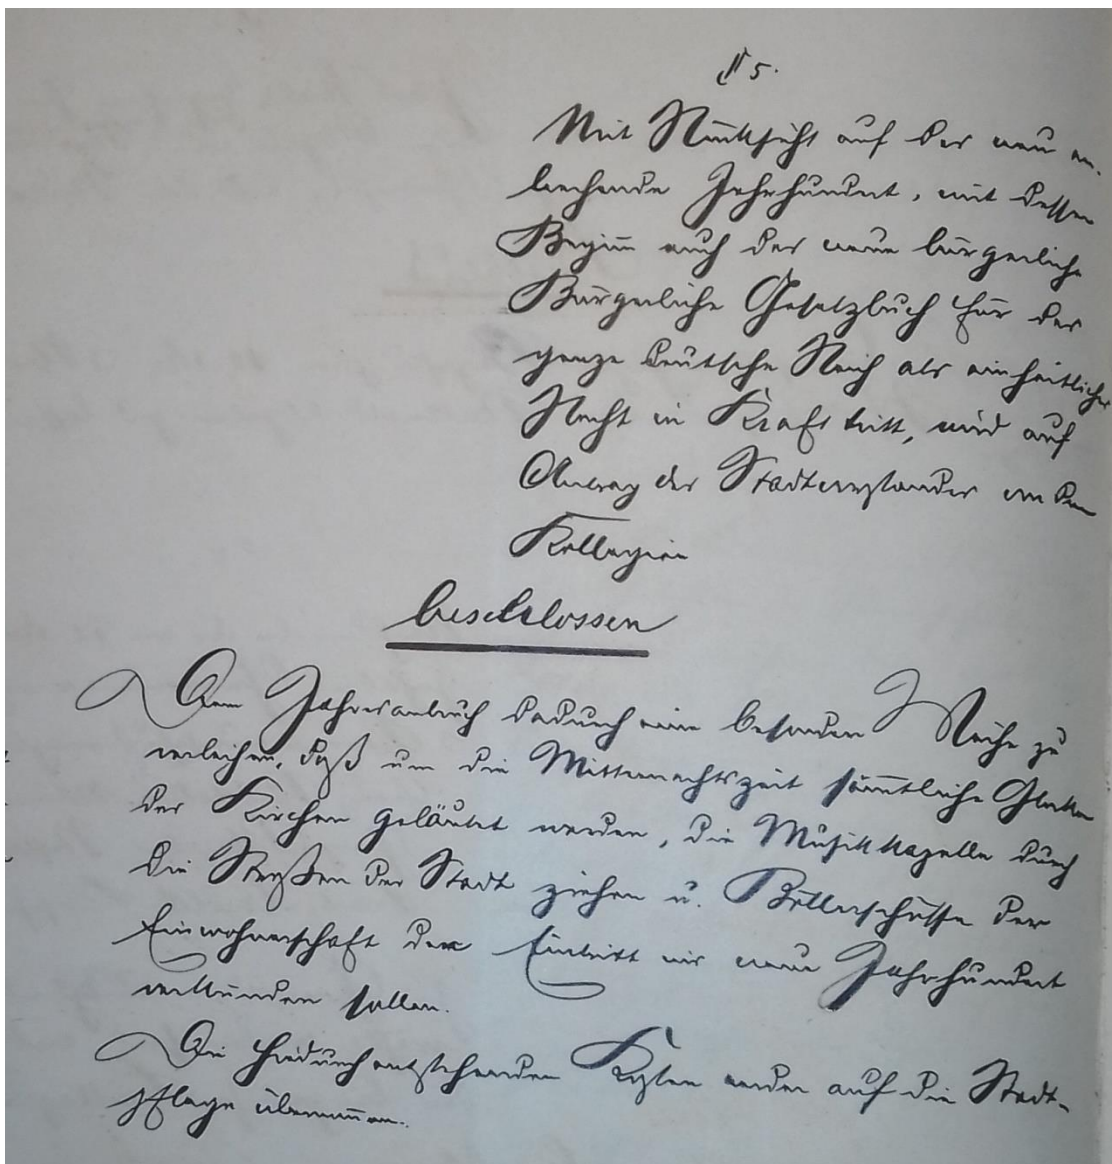 § 5.
Mit Rücksicht auf das neu an-
brechende Jahrhundert, mit dessen
Beginn auch das neue bürgerliche
Bürgerliche Gesetzbuch für das
ganze deutsche Reich als einheitliches
Recht in Kraft tritt, wird auf
Antrag des Stadtvorstandes von den
Kollegien
beschlossen
Dem Jahresanbruch dadurch eine besondere Weihe zu
verleihen, daß um die Mitternachtszeit sämmtliche Glocken
der Kirchen geläutet werden, die Musikkapelle durch
die Straßen der Stadt ziehen u. Böllerschüsse der
Einwohnerschaft den Eintritt ins neue Jahrhundert
verkünden sollen.
Die hiedurch entstehenden Kosten werden auf die Stadt-
pflege übernommen.